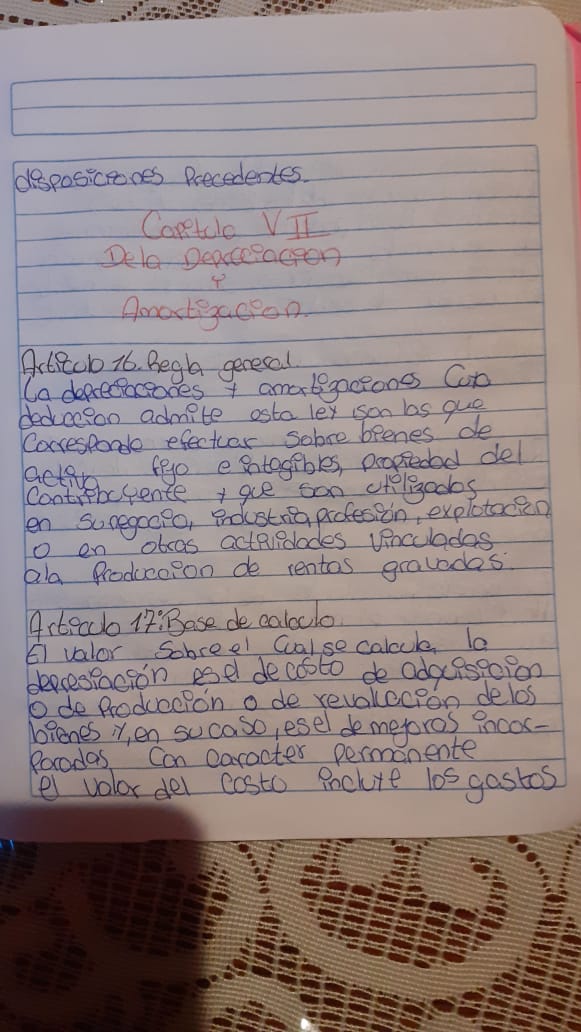 disposiciones Precedentes.
Capitulo VII
De la Depreciacion
y
Amortizacion.
Articulo 16. Regla general.
La depreciaciones y amortizaciones Cuya
deduccion admite esta ley son las que
Corresponde efectuar Sobre bienes de
activo fijo e intagibles, propiedad del
Contribuyente y que son utilizados
en su negocio, industria, profesión, explotacion
o en otras actividades Vinculadas
ala Produccion de rentas gravadas.
Articulo 17: Base de calculo.
El valor Sobre el Cual se calcula la
depresiación es el de costo de adquisicion
o de Producción o de revaluación de los
bienes y, en su caso, es el de mejoras incor-
Poradas Con caracter Permanente
el valor del costo incluye los gastos